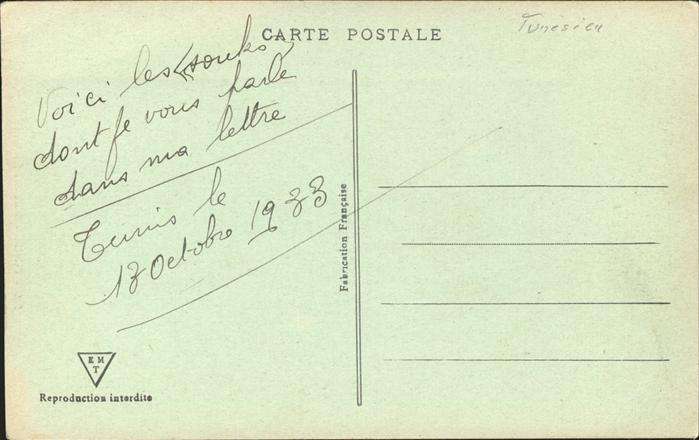 CARTE POSTALE
Tunisien
Voici les «souks»
dont je vous parle
dans ma lettre
Tunis le
13 Octobre 1933
Fabrication Française
EM
T
Reproduction interdite